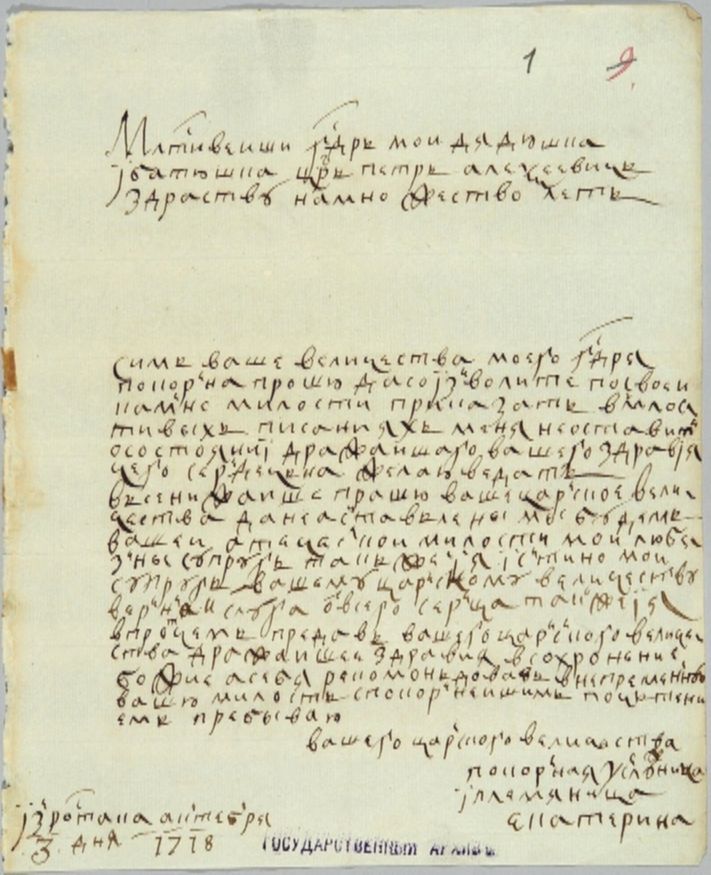 1 9
Млстивеиши гдрь мои дядюшка
ј батюшка црь петрь алеѯеевичь
здраствъ на множество леть
симь ваше величества моего гдря
покорна прошю да сојзволите по своеи
ка мне милости приказать в милос
тивыхь писанияхь меня не оставить
о состояниј дражаишаго вашего здравјя
чего сердечна желаю ведать
вьсенижаише прашю ваше царское вели
чества да не аставлены мы будемь
вашеи атечаскои милости мои любе
зны супругь так же ј я јстино мои
супругь вашему царскому величеству
верна слуга от всего серца так же ј я
впрочемь предавь вашего царского величе
ства дражаишее здравия в сохронение
божие а себя рекомондовавь в непременную
вашю милость с покорнеишимь почьтени
емь пребываю
вашего царского величества
покорная услужница
ј племяница
екатерина
јз ростака актебря
3 дня 1718
ГОСУДАРСТВЕННЫЙ АРХИВЪ